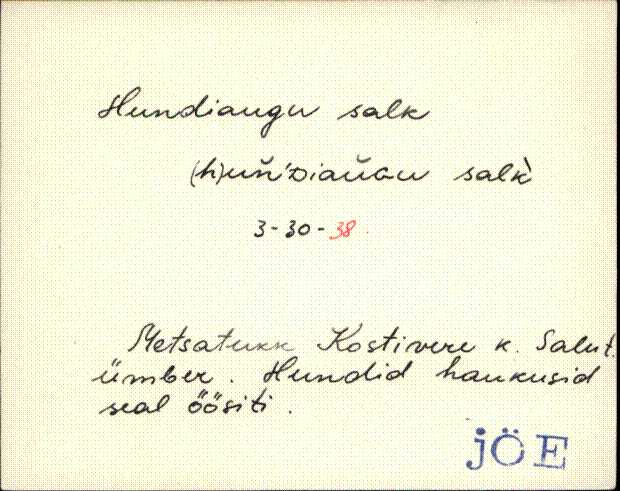 Hundiaugu salk
(h)uň'ᴅiaŭɢu salk̀
3-30-38
Metsatukk Kostivere k. Salut.
ümber. Hundid haukusid
seal öösiti.
JÖE